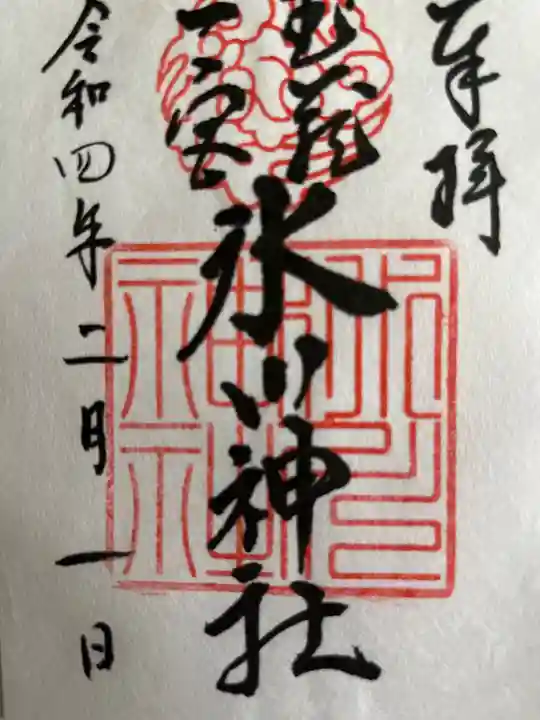 奉拝
武蔵
一宮
氷川神社
令和四年二月一日